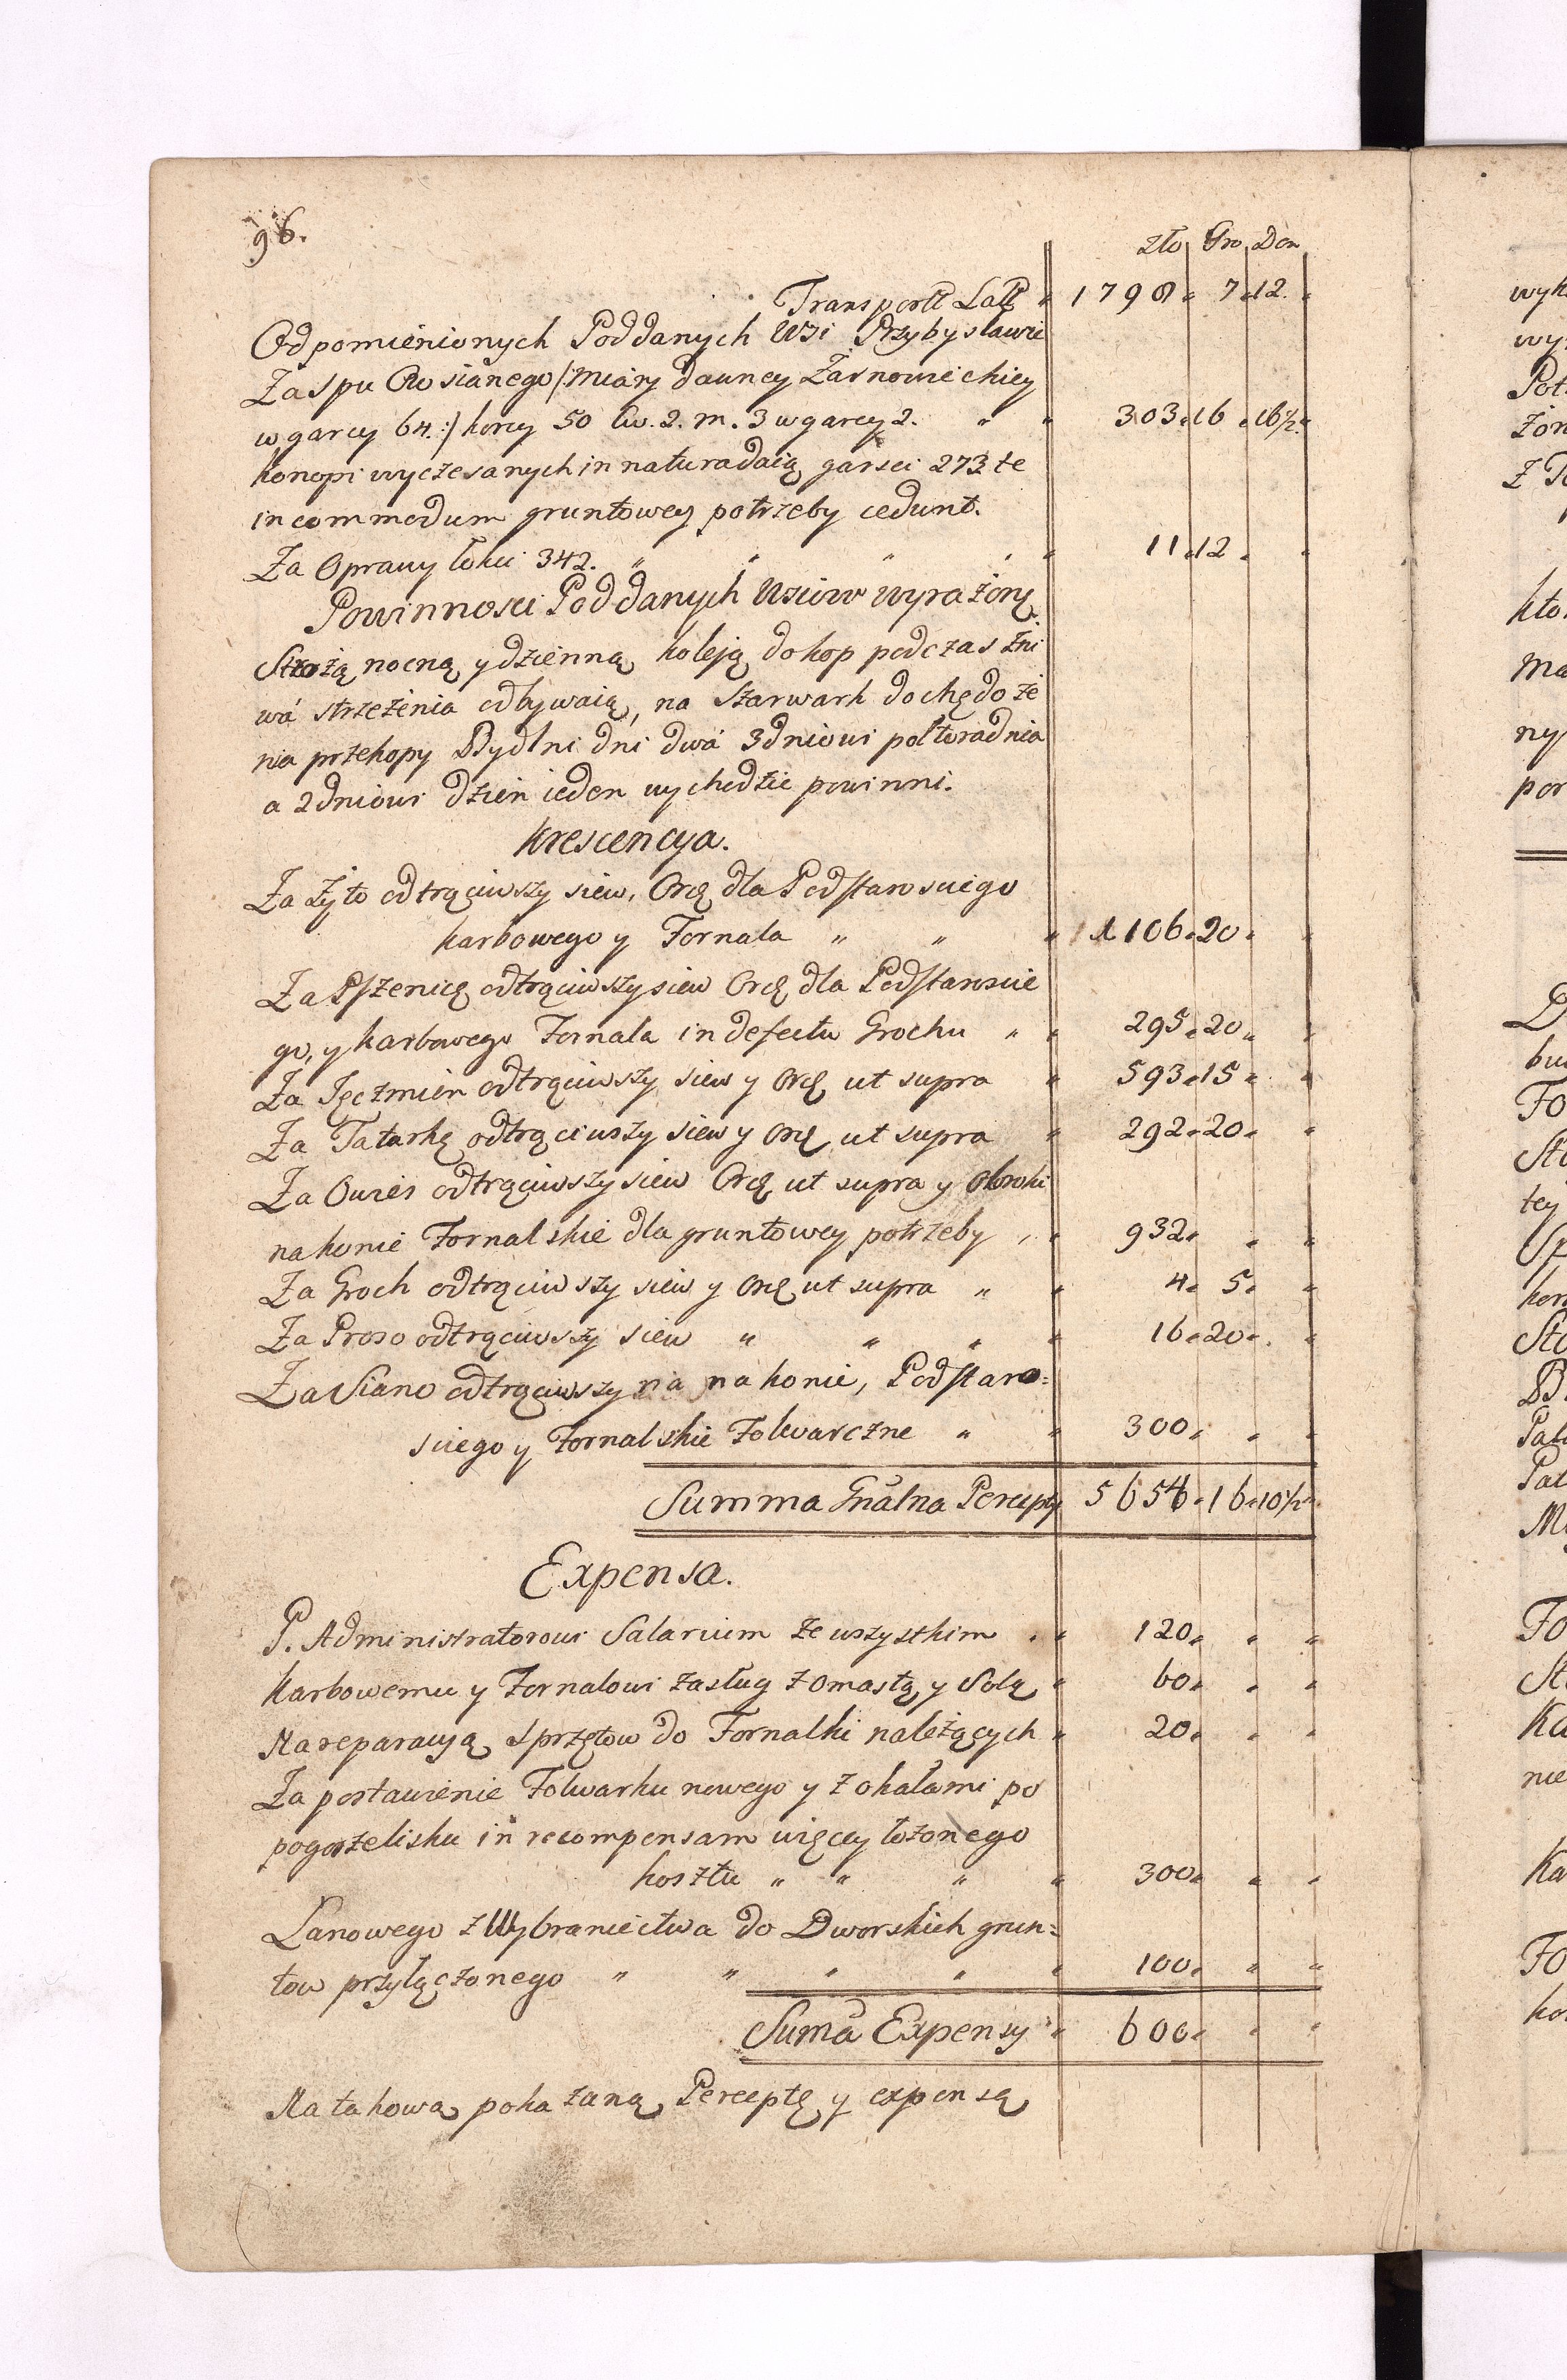 96.
zło Gro Den
Transportt Latt " 1798 " 7 " 12 "
Odpomienionych Poddanych Wsi Przybysławie
Za spu Owsianego /: miary dawney Żarnowieckiey
w garcy 64. :/ korcy 50 Cw. 2. m. 3 w garcy 2. " " 303 " 16 " 16½ "
Konopi wyczesanych in natura daią garsci 273 te
in commodum gruntowey potrzeby cedunt.
Za Oprawy łokci 342. " " " " " 11 " 12 " "
Powinnosci Poddanych Usiow wyrażoną
Strożą nocną y dzienną koleją do kop podczas żni
wá strzeżenia odbywaią, na Szarwark do chędoże
nia przekopy Bydlni dni dwá 3dniowi poltoradnia
a 2dniowi dzień ieden wychodzie powinni.
Krescencya.
Za Zyto odtrąciwszy siew, Orę dla Podstarosciego
karbowego y Fornala " " " 1106 " 20 " "
Za Pszenicę odtrąciwszy siew Orę dla Podstaroscie
go, y karbowego Fornala in defectu Grochu " " 295 " 20 " "
Za Jęczmien odtrąciwszy siew y Orę ut supra " 593 " 15 " "
Za Tatarkę odtrąciwszy siew y Orę ut supra " 292 " 20 " "
Za Owies odtrąciwszy siew Orę ut supra y Obroki
na konie Fornalskie dla gruntowey potrzeby " " 932 " " "
Za Groch odtrąciwszy siew y Orę ut supra " " 4 " 5 " "
Za Proso odtrąciwszy siew " " " " 16 " 20 " "
Za Siano odtrąciwszy na na konie, Podstaro=
sciego y Fornalskie Folwarczne " " 300 " " "
Summa Gnalna Percepty 5654 " 16 " 10½ "
Expensa.
P. Administratorowi Salarium ze wszystkim . " 120 " " "
Karbowemu y Fornalowi zasług z omastą y Solą " 60 " " "
Na reparacyą sprzętow do Fornalki należących " 20 " " "
Za postawienie Folwarku nowego y z okałami po
pogorzelisku in recompensam więcey łożonego
kosztu " " " " 300 " " "
Lanowego z Wybraniectwa do Dworskich grun=
tow przyłączonego " " " " " 100 " " "
Sumã Expensy " " 600 " " "
Na takową pokazaną Perceptę y expensą
wyk
wy
Pot
żon
kto
ma
ny
por
D
bu
Fo
Sto
tey
Sp
kor
Sto
B
Pa
Pa
M
Fo
St
Ka
nie
Ka
Fo
ko